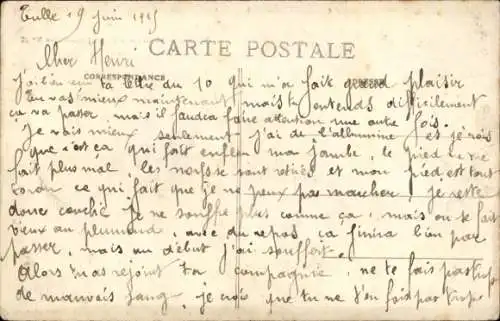 Tulle 19 juin 1915
Cher Henri
CARTE POSTALE
CORRESPONDANCE
J'ai bien reçu ta lettre du 10 qui m'a fait grand plaisir
Tu vas mieux maintenant mais tu entends difficilement
ça va passer, mais il faudra faire attention une autre fois.
Je vais mieux seulement j'ai de l'albumine et je crois
que c'est ça qui fait enfler ma jambe, le pied ne me
fait plus mal, les nerfs se sont retirés et mon pied est tout
tordu ce qui fait que je ne peux pas marcher, je reste
donc couché je ne souffre plus comme ça, mais on se fait
vieux au plumard, avec du repos, ça finira bien par
passer, mais au début j'ai souffert.
Alors tu as rejoint ta compagnie, ne te fais pas trop
de mauvais sang, je crois que tu ne t'en fais pas trop